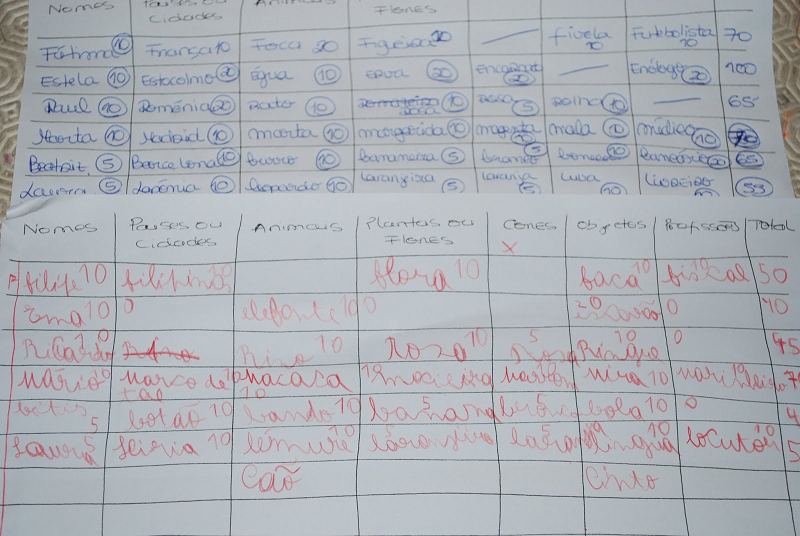 Nomes Países ou Cidades Animais Flores
Fátima 10 França 10 Foca 20 Figueira 10 — Fivela 10 Futebolista 10 70
Estela 10 Estocolmo 20 égua 10 Erva 20 Encarnado 20 — Enólogo 20 100
Raul 10 Roménia 20 Rato 10 Rosa 5 Rolha 10 — 65
Marta 10 Madrid 10 marta 10 margarida 10 magenta 10 mala 10 médico 10 70
Beatriz 5 Barcelona 10 burro 10 bananeira 5 branco 5 boneca 10 bancário 20 65
Laura 5 Lapónia 10 leopardo 10 laranjeira 5 laranja 5 luva 10 55
Nomes Países ou Cidades Animais Plantas ou Flores Cores Objetos Profissão Total
x
filipe 10 filipinas flora 10 faca 10 fiscal 50
Ema 10 0 elefante 10 0 0 40
Ricardo 10 Rino 10 Roza 10 Rosa 5 Ringue 10 0 45
Mário 10 marco de macaca macieira marron mira 10
5 botão 10 bando 10 banana 5 bola 10 0
Laura 5 leiria 10 lémure 10 laranjeira língua locutor
Cão Cinto